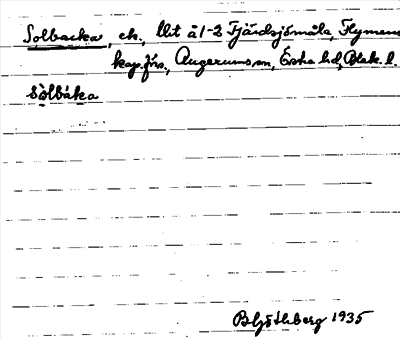 Solbacka, ek., lbt å 1-2 Fjärdsjömåla, Flymens
kap.förs., Augerums sn, Östra hd, Blek. l.
sòlbáka
B Ljöthberg 1935